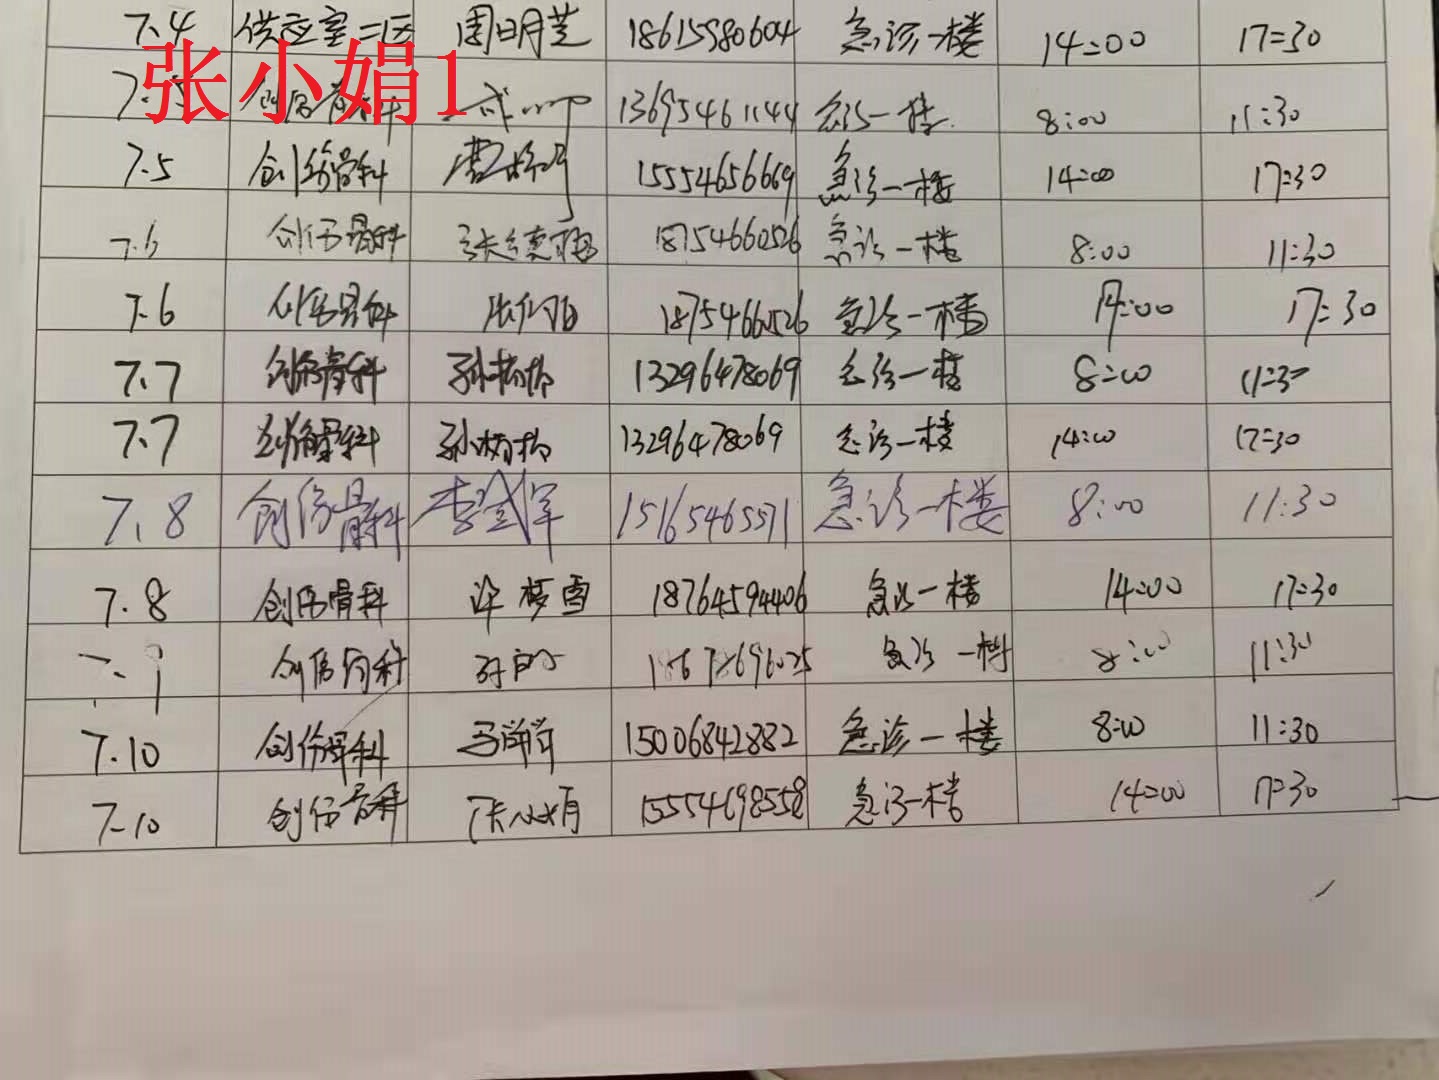 7.4 供应室二区 周明芝 18615980604 急诊一楼 14:00 17:30
张小娟1
13695461144 急诊一楼 8:00 11:30
7.5 创伤骨科 15554656669 急诊一楼 14:00 17:30
7.6 创伤骨科 18754660526 急诊一楼 8:00 11:30
7.6 创伤骨科 18754660526 急诊一楼 14:00 17:30
7.7 创伤骨科 13296478069 急诊一楼 8:00 11:30
7.7 创伤骨科 13296478069 急诊一楼 14:00 17:30
7.8 创伤骨科 15165465571 急诊一楼 8:00 11:30
7.8 创伤骨科 许梦雪 18764594406 急诊一楼 14:00 17:30
7.9 创伤骨科 急诊一楼 8:00 11:30
7.10 创伤骨科 15006842882 急诊一楼 8:00 11:30
7.10 创伤骨科 张小娟 15554698558 急诊一楼 14:00 17:30